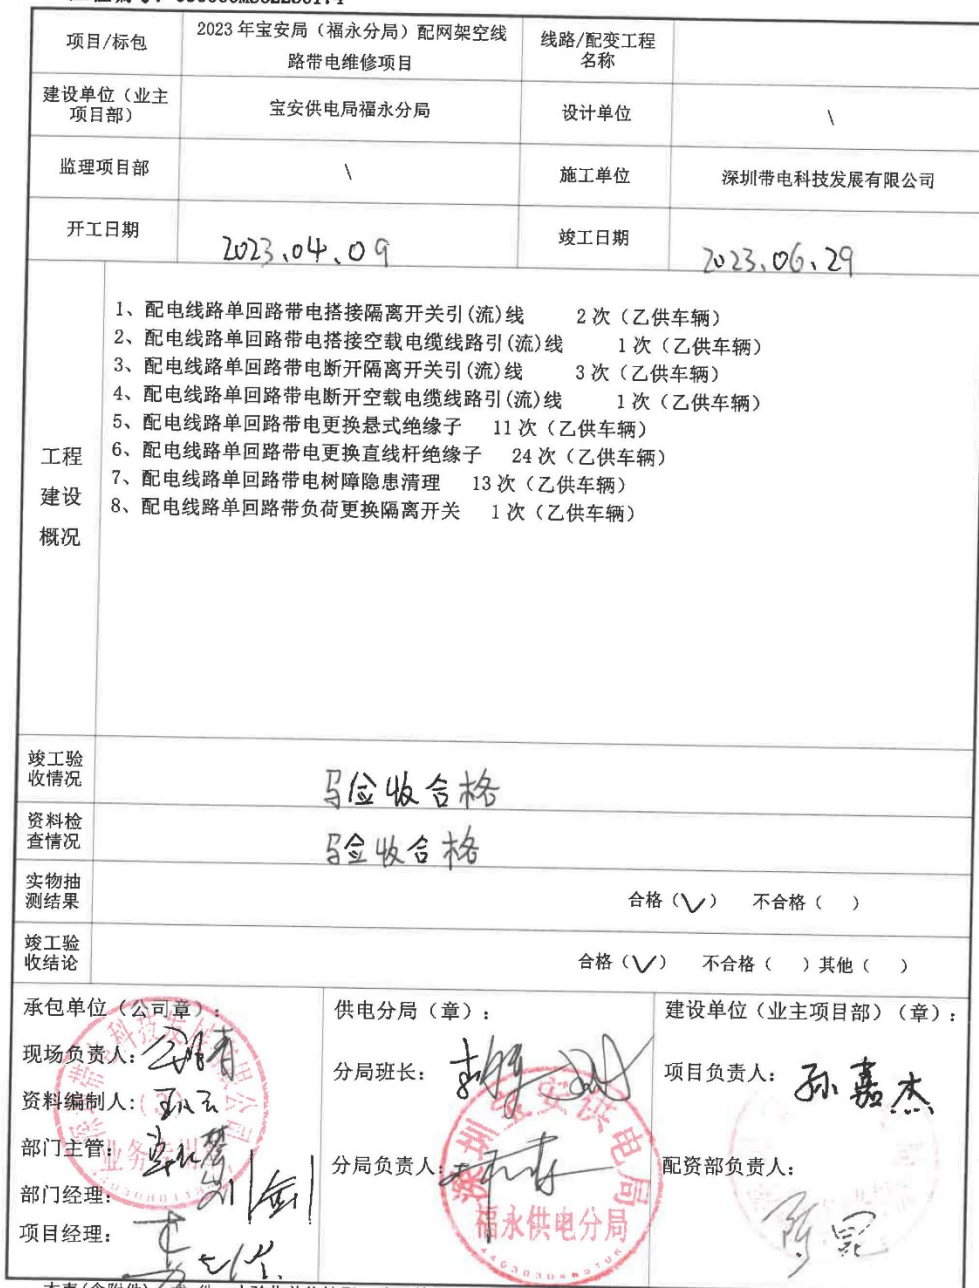 项目/标包
2023年宝安局（福永分局）配网架空线
路带电维修项目
线路/配变工程
名称
建设单位（业主
项目部）
宝安供电局福永分局
设计单位
\
监理项目部
\
施工单位
深圳带电科技发展有限公司
开工日期
2023.04.09
竣工日期
2023.06.29
工程
建设
概况
1、配电线路单回路带电搭接隔离开关引(流)线 2次（乙供车辆）
2、配电线路单回路带电搭接空载电缆线路引(流)线 1次（乙供车辆）
3、配电线路单回路带电断开隔离开关引(流)线 3次（乙供车辆）
4、配电线路单回路带电断开空载电缆线路引(流)线 1次（乙供车辆）
5、配电线路单回路带电更换悬式绝缘子 11次（乙供车辆）
6、配电线路单回路带电更换直线杆绝缘子 24次（乙供车辆）
7、配电线路单回路带电树障隐患清理 13次（乙供车辆）
8、配电线路单回路带负荷更换隔离开关 1次（乙供车辆）
竣工验
收情况
验收合格
资料检
查情况
验收合格
实物抽
测结果
合格（✓） 不合格（ ）
竣工验
收结论
合格（✓） 不合格（ ）其他（ ）
承包单位（公司章）：
现场负责人：
资料编制人：
部门主管：
部门经理：
项目经理：
供电分局（章）：
分局班长：
分局负责人：
深圳宝安供电局
福永供电分局
建设单位（业主项目部）（章）：
项目负责人：孙嘉杰
配资部负责人：